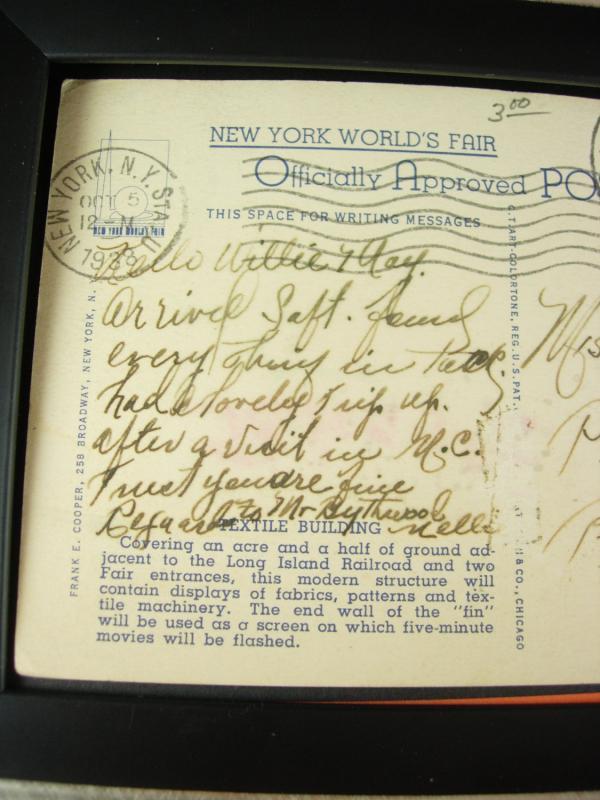 3.00
NEW YORK WORLD'S FAIR
Officially Approved PO
THIS SPACE FOR WRITING MESSAGES
NEW YORK, N.Y. STA.
OCT 5
12-M
1938
NEW YORK WORLD'S FAIR
Hello Willie May.
Arrived Saft. found
every thing in
had a lovely trip up.
after a visit in N.C.
Trust you are fine
Regards to Mr Bythwood
Nelle
Mis
TEXTILE BUILDING
Covering an acre and a half of ground ad-
jacent to the Long Island Railroad and two
Fair entrances, this modern structure will
contain displays of fabrics, patterns and tex-
tile machinery. The end wall of the "fin"
will be used as a screen on which five-minute
movies will be flashed.
FRANK E. COOPER, 258 BROADWAY, NEW YORK, N.
C.T. ART-COLORTONE, REG. U.S. PAT.
& CO., CHICAGO